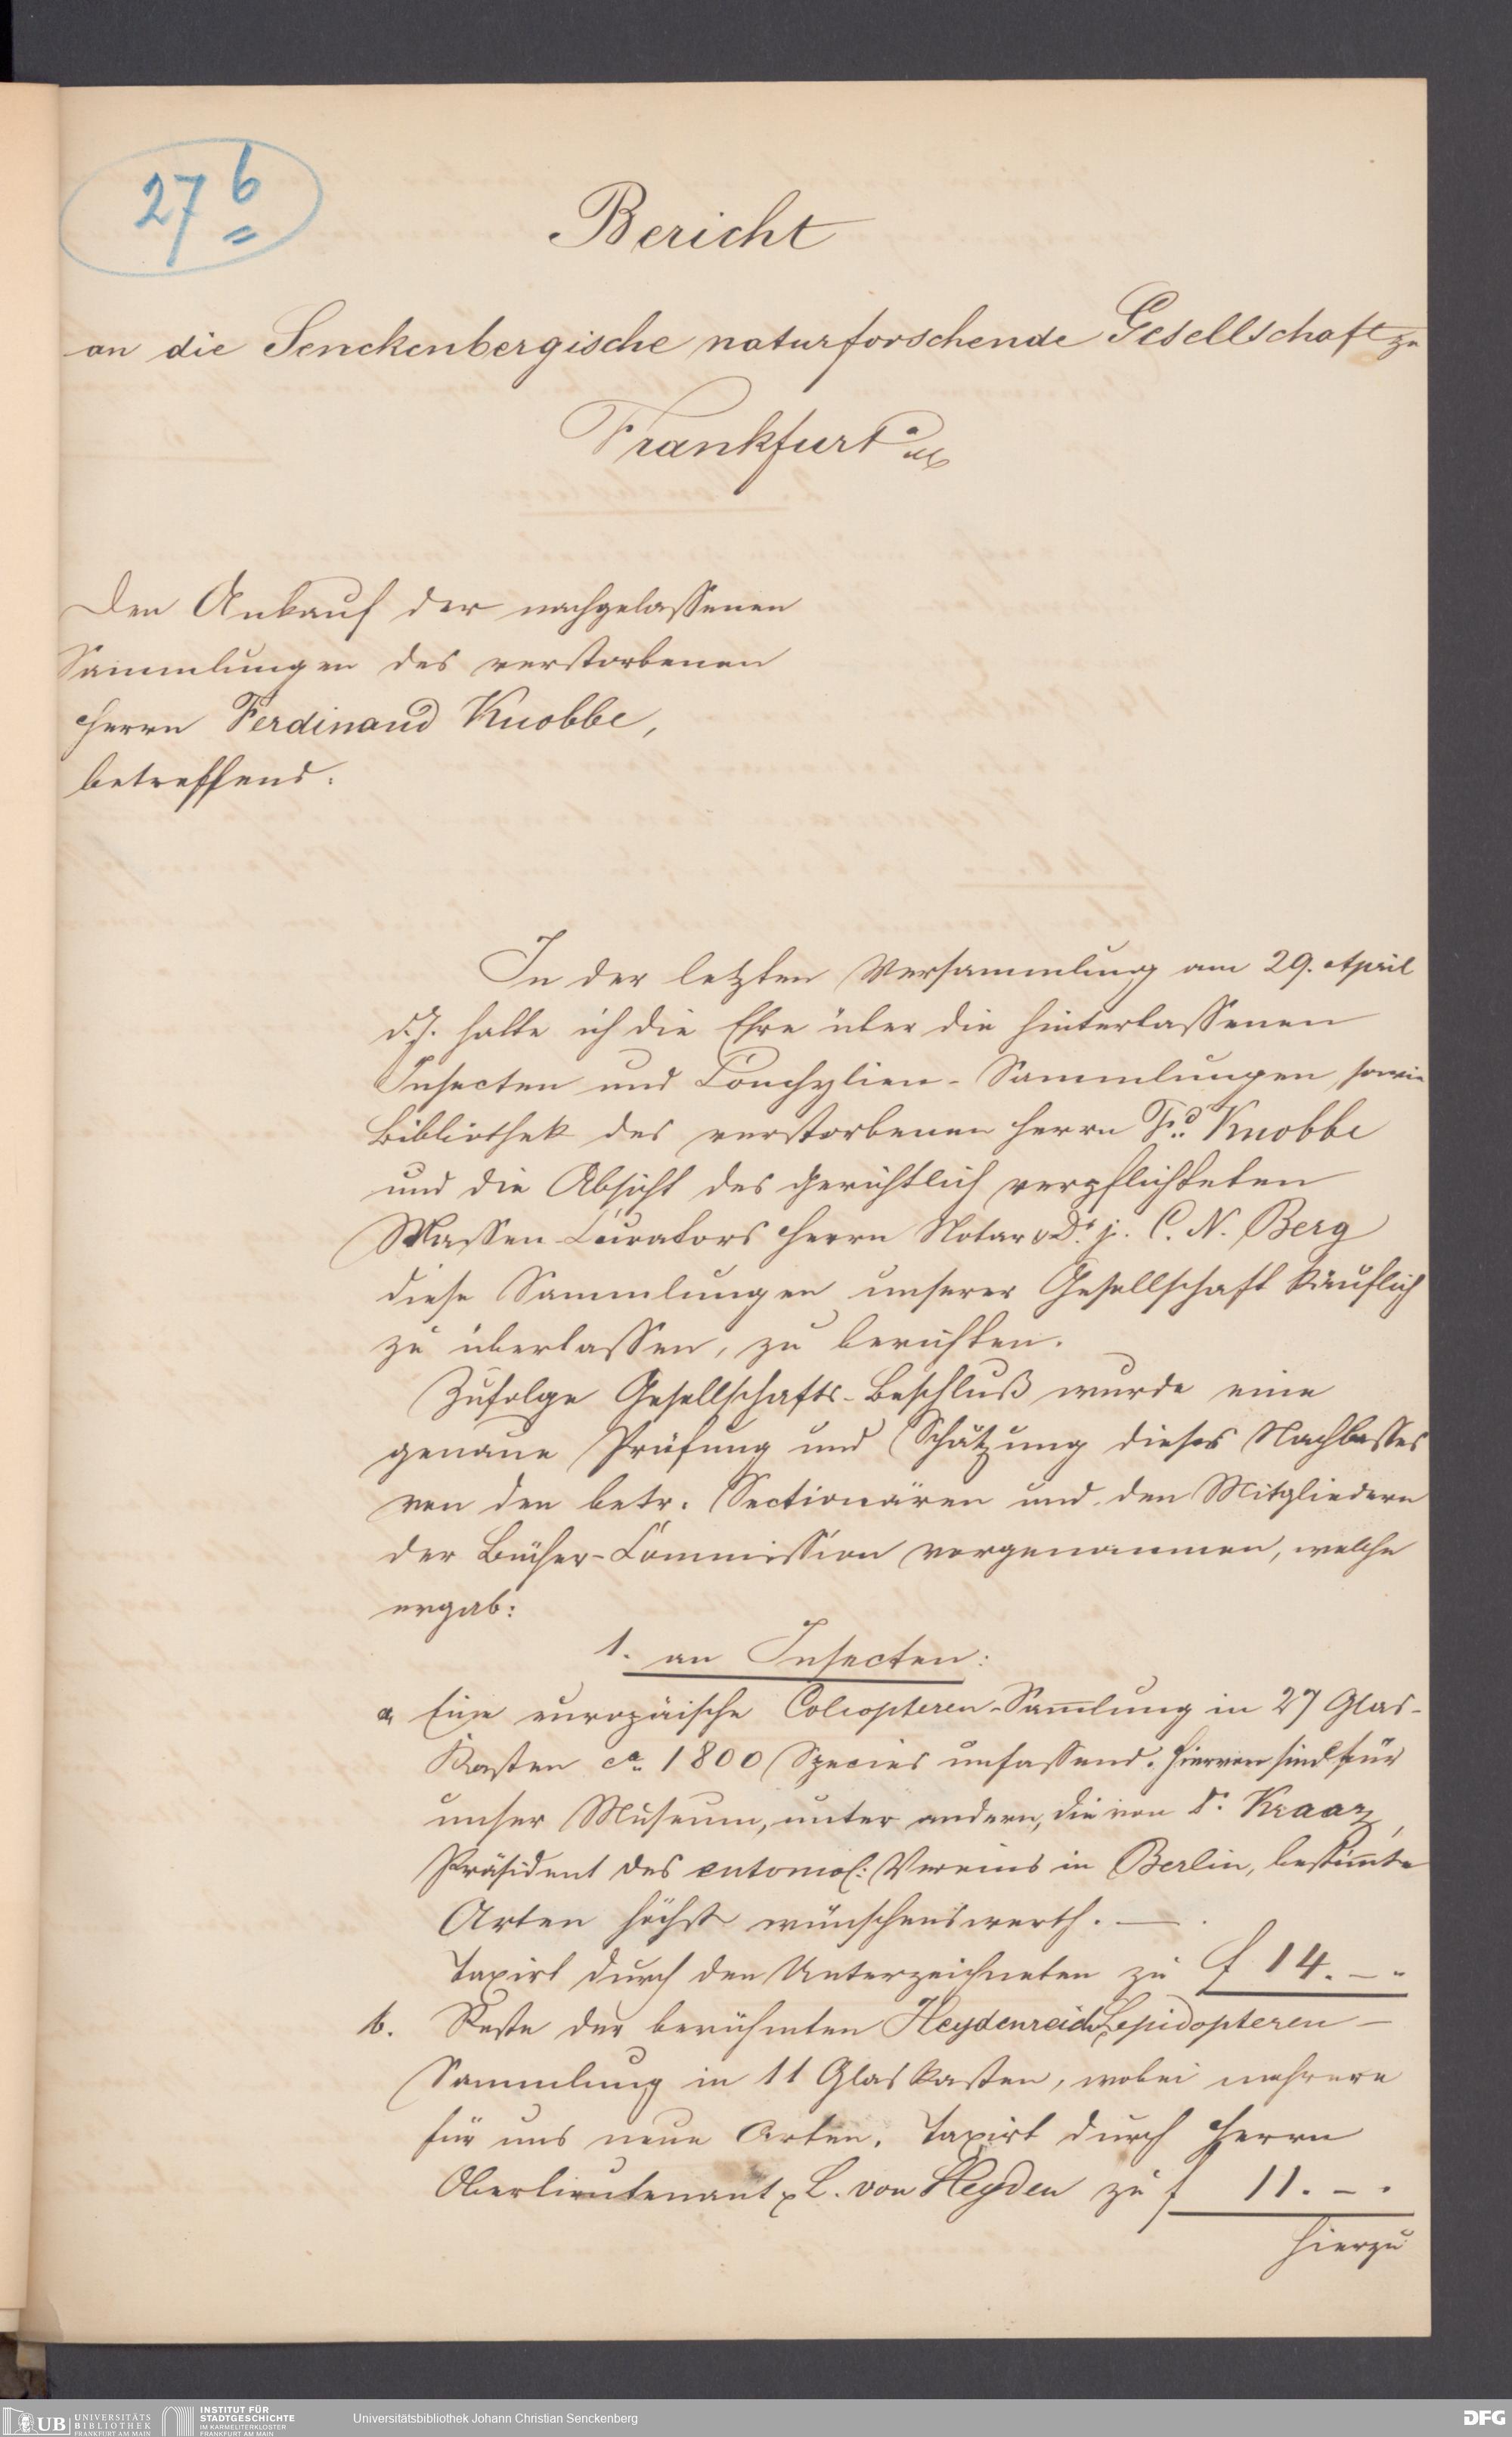 27 b
Bericht
an die Senckenbergische naturforschende Gesellschaft zu
Frankfurt a/M
Den Ankauf der nachgelassenen
Sammlungen des verstorbenen
Herrn Ferdinand Knobbe,
betreffend.
In der letzten Versammlung am 29. April
d. J. hatte ich die Ehre über die hinterlassenen
Insecten und Conchylien-Sammlungen sowie
Bibliothek des verstorbenen Herrn Fd. Knobbe
und die Absicht des gerichtlich verpflichteten
Massen-Curators Herrn Notar Dr. j. C. N. Berg
diese Sammlungen unserer Gesellschaft käuflich
zu überlassen, zu berichten.
Zufolge Gesellschafts-Beschluß wurde eine
genaue Prüfung und Schätzung dieses Nachlasses
von den betr. Sectionären und den Mitgliedern
der Bücher-Commission vorgenommen, welche
ergab:
1. an Insecten:
a Eine europäische Coleopteren-Sam̄lung in 27 Glas-
Kasten ca. 1800 Species umfassend. Hiervon sind für
unser Museum, unter andern, die von Dr. Kraaz,
Präsident des entomol: Vereins in Berlin, bestim̄te
Arten höchst wünschenswerth. —
Taxirt durch den Unterzeichneten zu f 14. – "
b. Reste der berühmten Heydenreich Lepidopteren-
Sammlung in 11 Glaskasten, wobei mehrere
für uns neue Arten. Taxirt durch Herrn
Oberlieutenant L. von Heyden zu f 11. – .
Hierzu
UB UNIVERSITÄTS
BIBLIOTHEK
FRANKFURT AM MAIN
INSTITUT FÜR
STADTGESCHICHTE
IM KARMELITERKLOSTER
FRANKFURT AM MAIN
Universitätsbibliothek Johann Christian Senckenberg
DFG